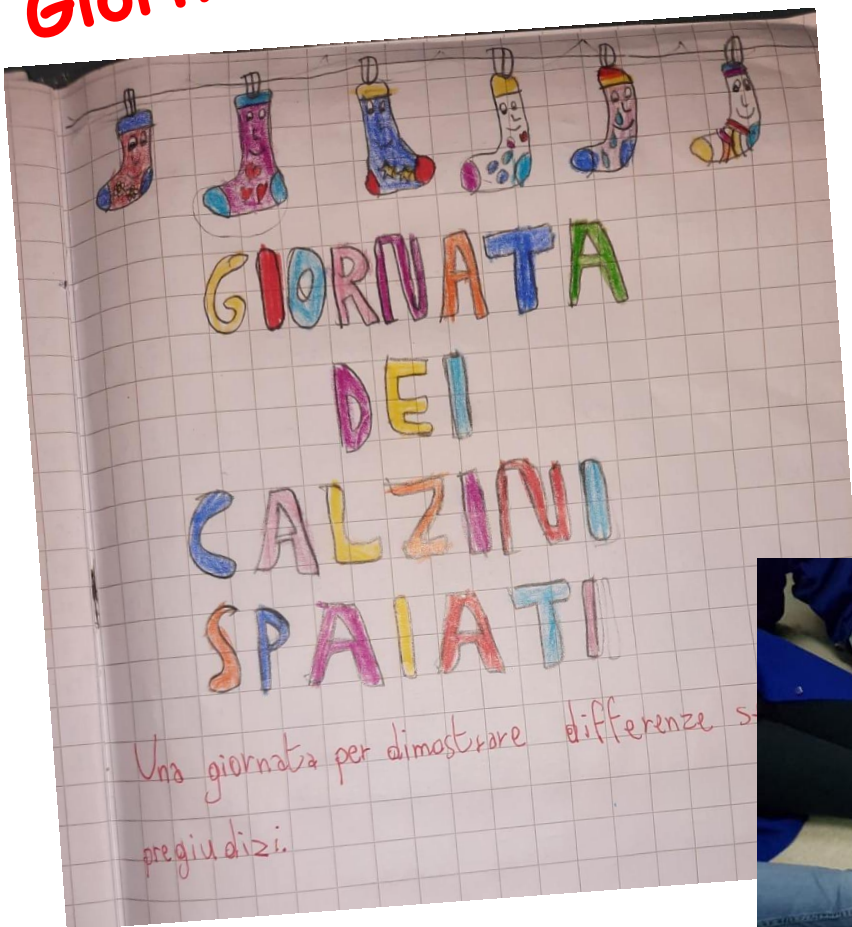 GIORNATA
DEI
CALZINI
SPAIATI
Una giornata per dimostrare differenze
pregiudizi.